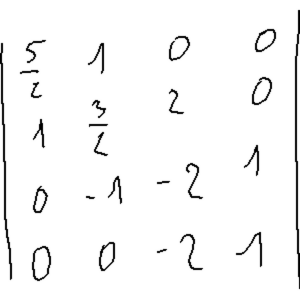 | 5/2 1 0 0 |
| 1 3/2 2 0 |
| 0 -1 -2 1 |
| 0 0 -2 1 |